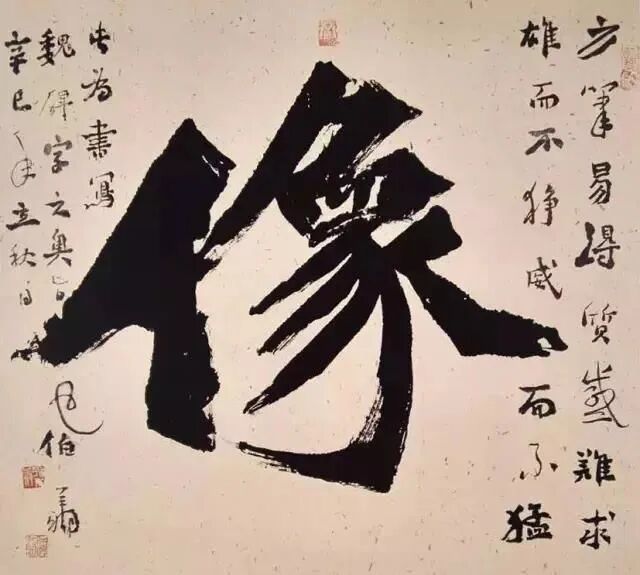 方筆易得質感難求
雄而不狰威而不猛
像
此為書寫
魏碑字之奥旨
辛巳年立秋日
伯